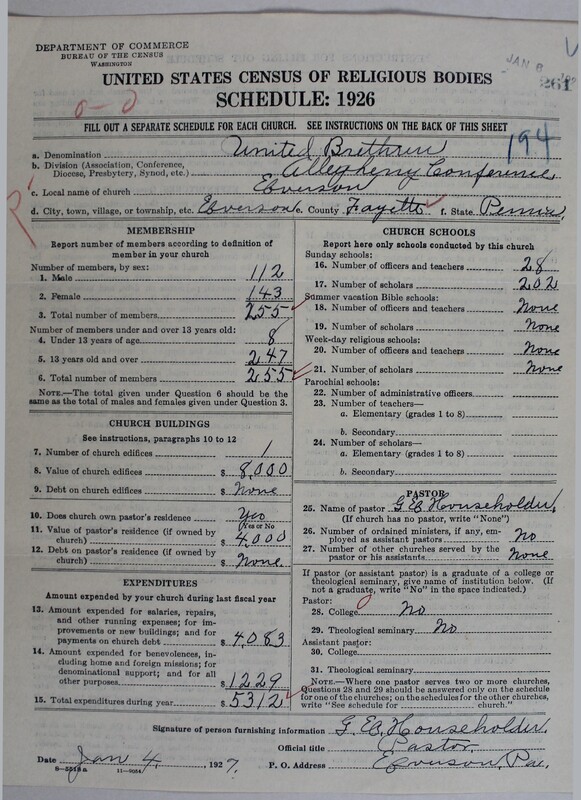 DEPARTMENT OF COMMERCE
BUREAU OF THE CENSUS
WASHINGTON
JAN 8
261
UNITED STATES CENSUS OF RELIGIOUS BODIES
SCHEDULE: 1926
0-0
FILL OUT A SEPARATE SCHEDULE FOR EACH CHURCH. SEE INSTRUCTIONS ON THE BACK OF THIS SHEET
194
a. Denomination United Brethren
b. Division (Association, Conference, Diocese, Presbytery, Synod, etc.) Allegheny Conference
c. Local name of church Everson
d. City, town, village, or township, etc. Everson e. County Fayette f. State Penna.
MEMBERSHIP
Report number of members according to definition of
member in your church
Number of members, by sex:
1. Male 112
2. Female 143
3. Total number of members. 255
Number of members under and over 13 years old:
4. Under 13 years of age 8
5. 13 years old and over 247
6. Total number of members 255
NOTE.—The total given under Question 6 should be the
same as the total of males and females given under Question 3.
CHURCH BUILDINGS
See instructions, paragraphs 10 to 12
7. Number of church edifices 1
8. Value of church edifices $ 8,000
9. Debt on church edifices $ None
10. Does church own pastor's residence Yes
Yes or No
11. Value of pastor's residence (if owned by
church) $ 4,000
12. Debt on pastor's residence (if owned by
church) $ None.
EXPENDITURES
Amount expended by your church during last fiscal year
13. Amount expended for salaries, repairs,
and other running expenses; for im-
provements or new buildings; and for
payments on church debt $ 4,083
14. Amount expended for benevolences, in-
cluding home and foreign missions; for
denominational support; and for all
other purposes $ 1229
15. Total expenditures during year $ 5312
CHURCH SCHOOLS
Report here only schools conducted by this church
Sunday schools:
16. Number of officers and teachers 28
17. Number of scholars 202
Summer vacation Bible schools:
18. Number of officers and teachers None
19. Number of scholars None
Week-day religious schools:
20. Number of officers and teachers None
21. Number of scholars None
Parochial schools:
22. Number of administrative officers
23. Number of teachers—
a. Elementary (grades 1 to 8)
b. Secondary
24. Number of scholars—
a. Elementary (grades 1 to 8)
b. Secondary
PASTOR
25. Name of pastor G. E. Householder.
(If church has no pastor, write "None")
26. Number of ordained ministers, if any, em-
ployed as assistant pastors No
27. Number of other churches served by the
pastor or his assistants None
If pastor (or assistant pastor) is a graduate of a college or
theological seminary, give name of institution below. (If
not a graduate, write "No" in the space indicated.)
Pastor:
28. College No
29. Theological seminary No
Assistant pastor:
30. College
31. Theological seminary
NOTE.—Where one pastor serves two or more churches,
Questions 28 and 29 should be answered only on the schedule
for one of the churches; on the schedules for the other churches,
write "See schedule for ______ church."
Signature of person furnishing information G. E. Householder.
Official title Pastor.
Date Jan 4, 1927. P. O. Address Everson, Pa.
8—5518a 11—9034